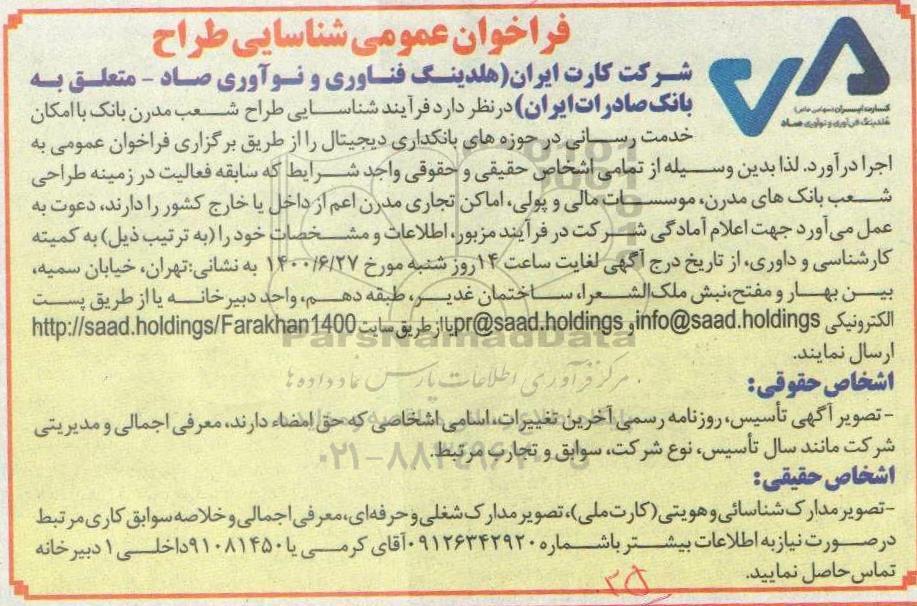 فراخوان عمومی شناسایی طراح
کارت ایران (سهامی خاص)
هلدینگ فن‌آوری و نوآوری صاد
شرکت کارت ایران(هلدینگ فناوری و نوآوری صاد - متعلق به
بانک صادرات ایران) در نظر دارد فرآیند شناسایی طراح شعب مدرن بانک با امکان
خدمت رسانی در حوزه های بانکداری دیجیتال را از طریق برگزاری فراخوان عمومی به
اجرا در آورد. لذا بدین وسیله از تمامی اشخاص حقیقی و حقوقی واجد شرایط که سابقه فعالیت در زمینه طراحی
شعب بانک های مدرن، موسسات مالی و پولی، اماکن تجاری مدرن اعم از داخل یا خارج کشور را دارند، دعوت به
عمل می‌آورد جهت اعلام آمادگی شرکت در فرآیند مزبور، اطلاعات و مشخصات خود را (به ترتیب ذیل) به کمیته
کارشناسی و داوری، از تاریخ درج آگهی لغایت ساعت ۱۴ روز شنبه مورخ ۱۴۰۰/۶/۲۷ به نشانی:تهران، خیابان سمیه،
بین بهار و مفتح،نبش ملک‌الشعرا، ساختمان غدیر، طبقه دهم، واحد دبیرخانه یا از طریق پست
الکترونیکی info@saad.holdings و pr@saad.holdings یا از طریق سایت http://saad.holdings/Farakhan1400
ارسال نمایند.
ParsNamadData
مرکز فرآوری اطلاعات پارس نماد داده ها
اشخاص حقوقی:
- تصویر آگهی تأسیس، روزنامه رسمی آخرین تغییرات، اسامی اشخاصی که حق امضاء دارند، معرفی اجمالی و مدیریتی
شرکت مانند سال تأسیس، نوع شرکت، سوابق و تجارب مرتبط.
اشخاص حقیقی:
-تصویر مدارک شناسائی و هویتی (کارت ملی)، تصویر مدارک شغلی و حرفه‌ای، معرفی اجمالی و خلاصه سوابق کاری مرتبط
در صورت نیاز به اطلاعات بیشتر با شماره ۰۹۱۲۶۳۴۲۹۲۰ آقای کرمی یا ۹۱۰۸۱۴۵۰ داخلی ۱ دبیرخانه
تماس حاصل نمایید.